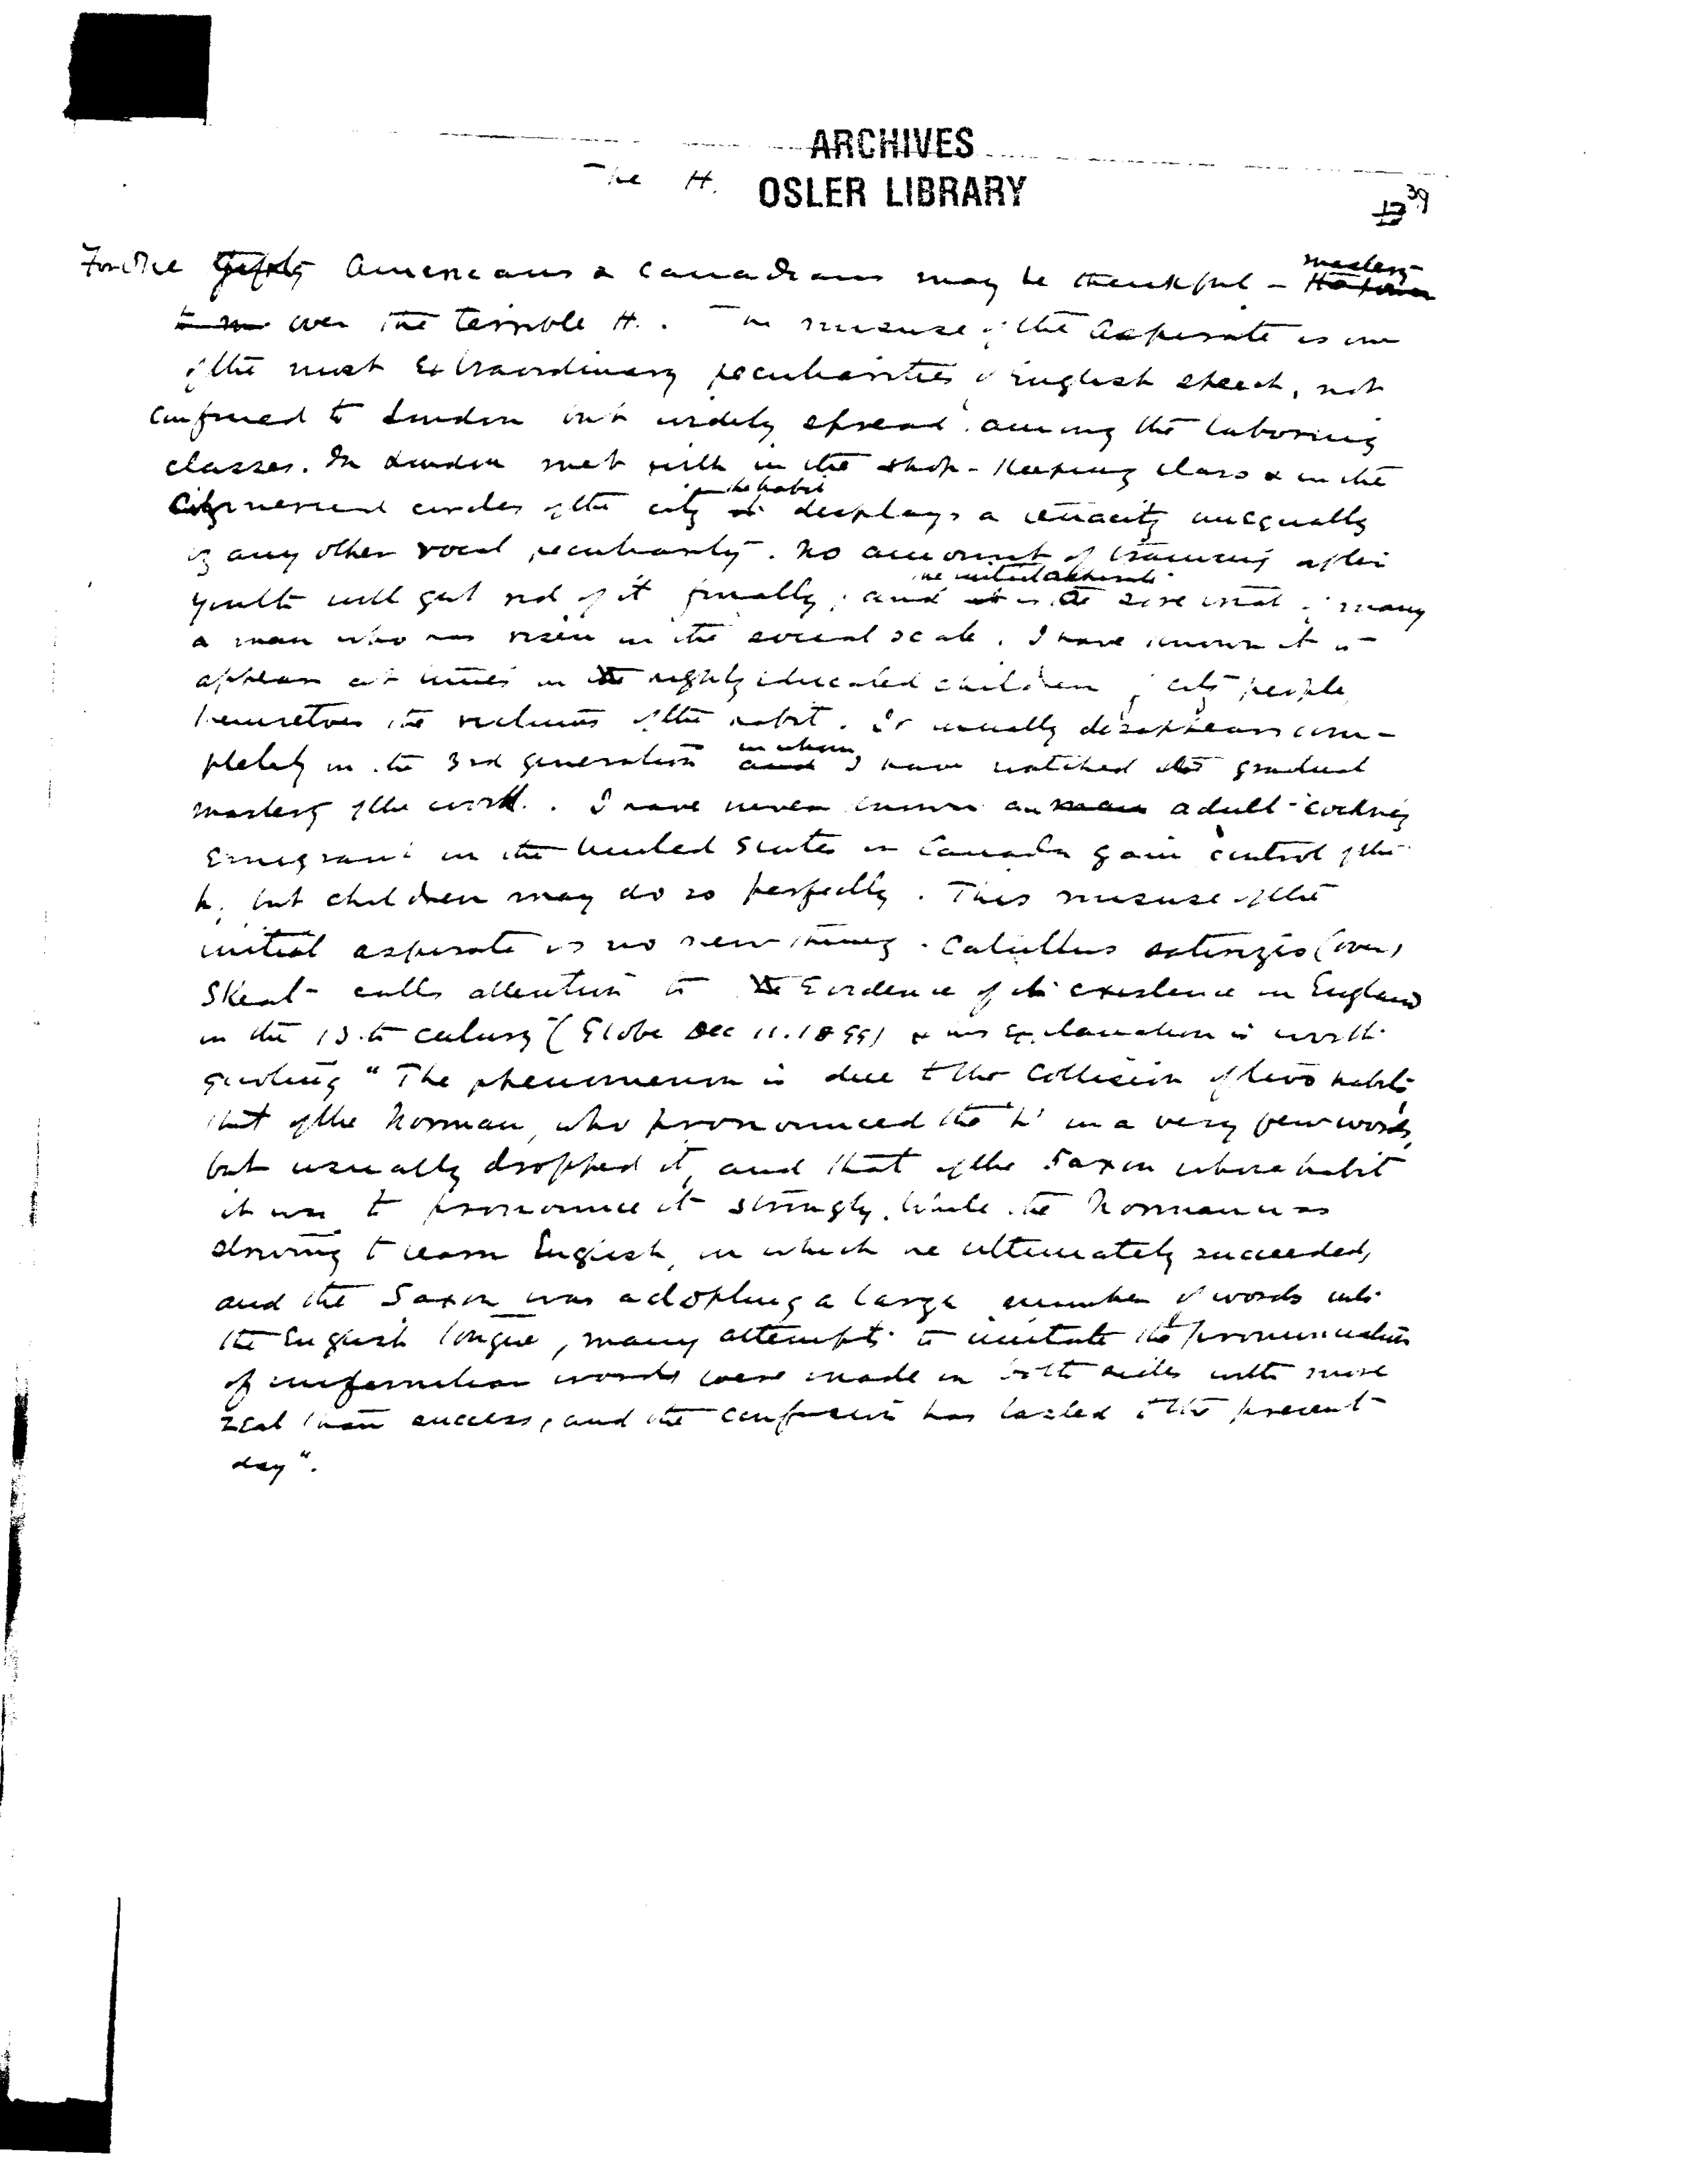 ARCHIVES
The H. OSLER LIBRARY
39
13
For one Americans & Canadians may be thankful - mastery
over the terrible H. The misuse of the aspirate is one
of the most extraordinary peculiarities of English speech, not
confined to London but widely spread among the laboring
classes. In London met with in the shop-keeping class & in the
commercial circles of the city the habit displays a tenacity unequally
by any other vocal peculiarity. No amount of training after
youth will get rid of it finally, and the initial aspirate is the of many
a man who has risen in the social scale. I have known it to
appear at times in the highly educated children of city people
themselves the victims of the habit. It usually disappears com-
pletely in the 3rd generation in whom I have watched the gradual
mastery of the work. I have never known an adult cockney
Emigrant in the United States or Canada gain control of the
h, but children may do so perfectly. This misuse of the
initial aspirate is no new thing. Catullus satirizes (over)
Skeat calls attention to the Evidence of its existence in England
in the 13th century (Globe Dec 11. 1899) & his explanation is worth
quoting "The phenomenon is due to the Collision of two habits
that of the Norman, who pronounced the 'h' in a very few words,
but usually dropped it, and that of the Saxon whose habit
it was to pronounce it strongly. While the Norman was
striving to learn English, in which he ultimately succeeded,
and the Saxon was adopting a large number of words into
the English tongue, many attempts to imitate the pronunciation
of unfamiliar words were made on both sides with more
zeal than success, and the confusion has lasted to the present
day".